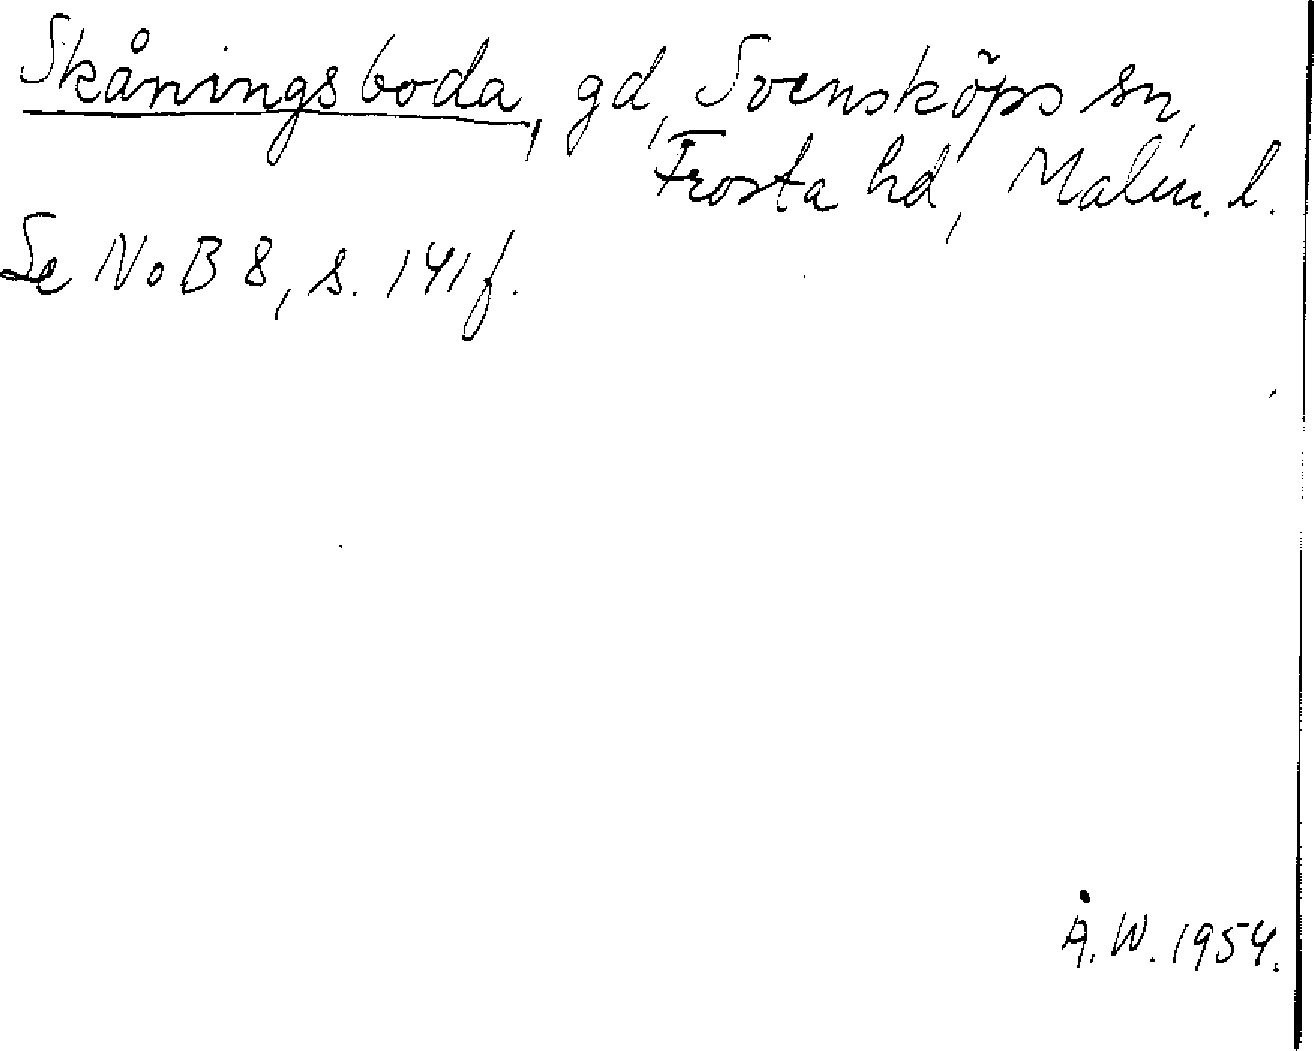 Skåningsboda, gd, Svensköps sn,
Frosta hd, Malm. l.
Se NoB 8, s. 141 f.
Å. W. 1954.